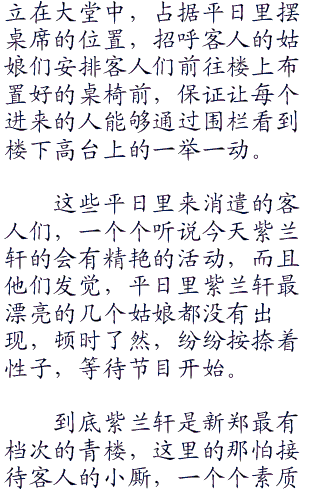 立在大堂中，占据平日里摆
桌席的位置，招呼客人的姑
娘们安排客人们前往楼上布
置好的桌椅前，保证让每个
进来的人能够通过围栏看到
楼下高台上的一举一动。
这些平日里来消遣的客
人们，一个个听说今天紫兰
轩的会有精艳的活动，而且
他们发觉，平日里紫兰轩最
漂亮的几个姑娘都没有出
现，顿时了然，纷纷按捺着
性子，等待节目开始。
到底紫兰轩是新郑最有
档次的青楼，这里的那怕接
待客人的小厮，一个个素质